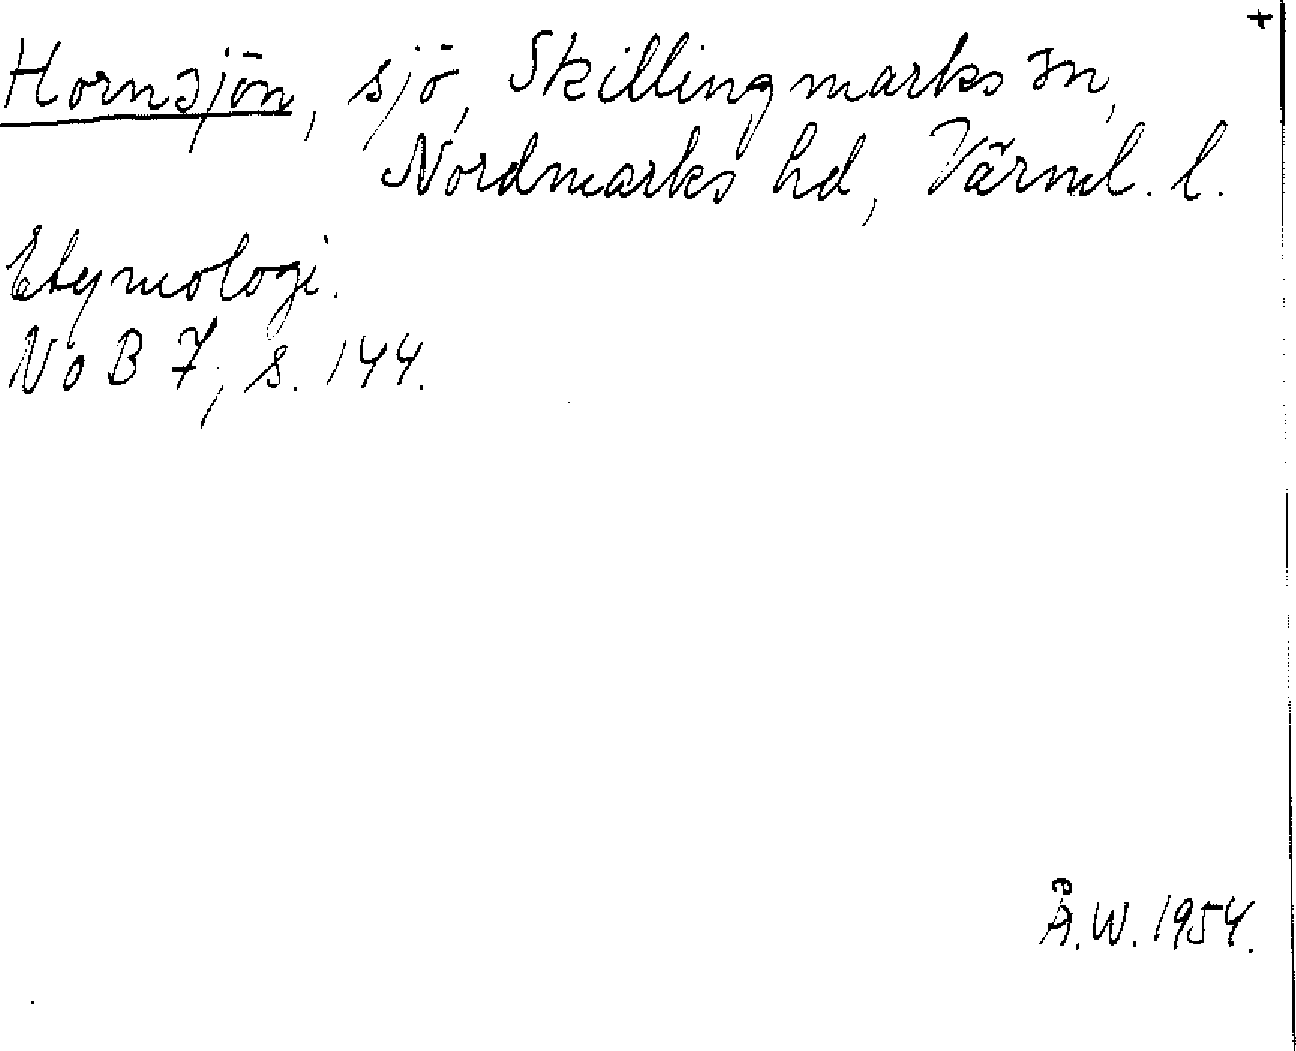 +
Hornsjön, sjö, Skillingmarks sn,
Nordmarks hd, Värml. l.
Etymologi.
NoB 7, s. 144.
Å.W. 1954.